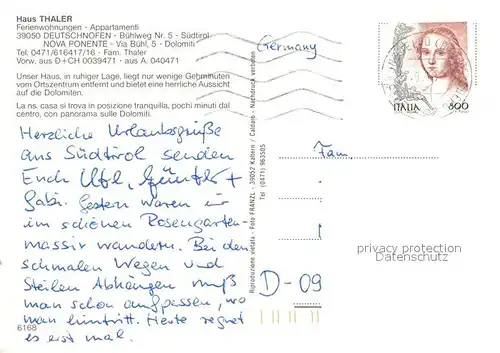 Haus THALER
Ferienwohnungen - Appartamenti
39050 DEUTSCHNOFEN - Bühlweg Nr. 5 - Südtirol
NOVA PONENTE - Via Bühl, 5 - Dolomiti
Tel. 0471/616417/16 - Fam. Thaler
Vorw. aus D+CH 0039471 - aus A. 040471
Unser Haus, in ruhiger Lage, liegt nur wenige Gehminuten
vom Ortszentrum entfernt und bietet eine herrliche Aussicht
auf die Dolomiten.
La ns. casa si trova in posizione tranquilla, pochi minuti dal
centro, con panorama sulle Dolomiti.
Herzliche Urlaubsgrüße
aus Südtirol senden
Euch Ufl, Günter +
Gabi. Gestern waren wir
im schönen Rosengarten-
massiv wandern. Bei den
schmalen Wegen und
Steilen Abhängen muß
man schon aufpassen, wo
man hintritt. Heute regnet
es erst mal.
6168
Riproduzione vietata - Foto FRANZL - 39052 Kaltern / Caldaro - Nachdruck verboten
Tel. (0471) 963505
Germany
ITALIA 800
Fam.
D-09
privacy protection
Datenschutz